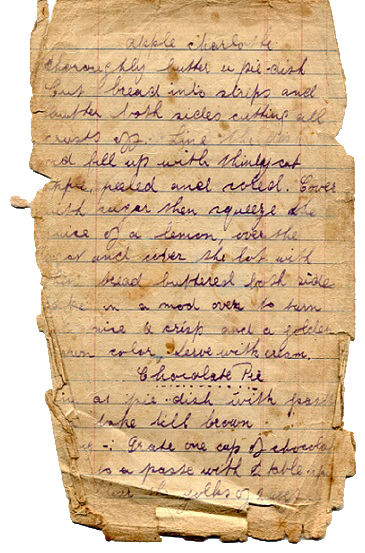 apple charlotte
thoroughly butter a pie-dish
Cut bread into strips and
butter both sides cutting all
crusts off. Line the
nd fill up with thinly cut
pple, peeled and cored. Cover
with sugar then squeeze the
uice of a lemon, over the
and cover the lot with
bread buttered both sides
ke in a mod oven to turn
nice & crisp and a golden
own color, serve with cream.
Chocolate Pie
a pie dish with past
bake till brown.
Grate one cup of chocola
o a paste with 2 table sp
the yolks of 2